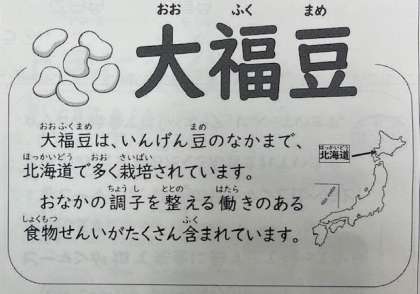 おお ふく まめ
大福豆
おおふくまめ まめ
大福豆は、いんげん豆のなかまで、
ほっかいどう おお さいばい
北海道で多く栽培されています。
ちょうし ととの はたら
おなかの調子を整える働きのある
しょくもつ ふく
食物せんいがたくさん含まれています。
ほっかいどう
北海道